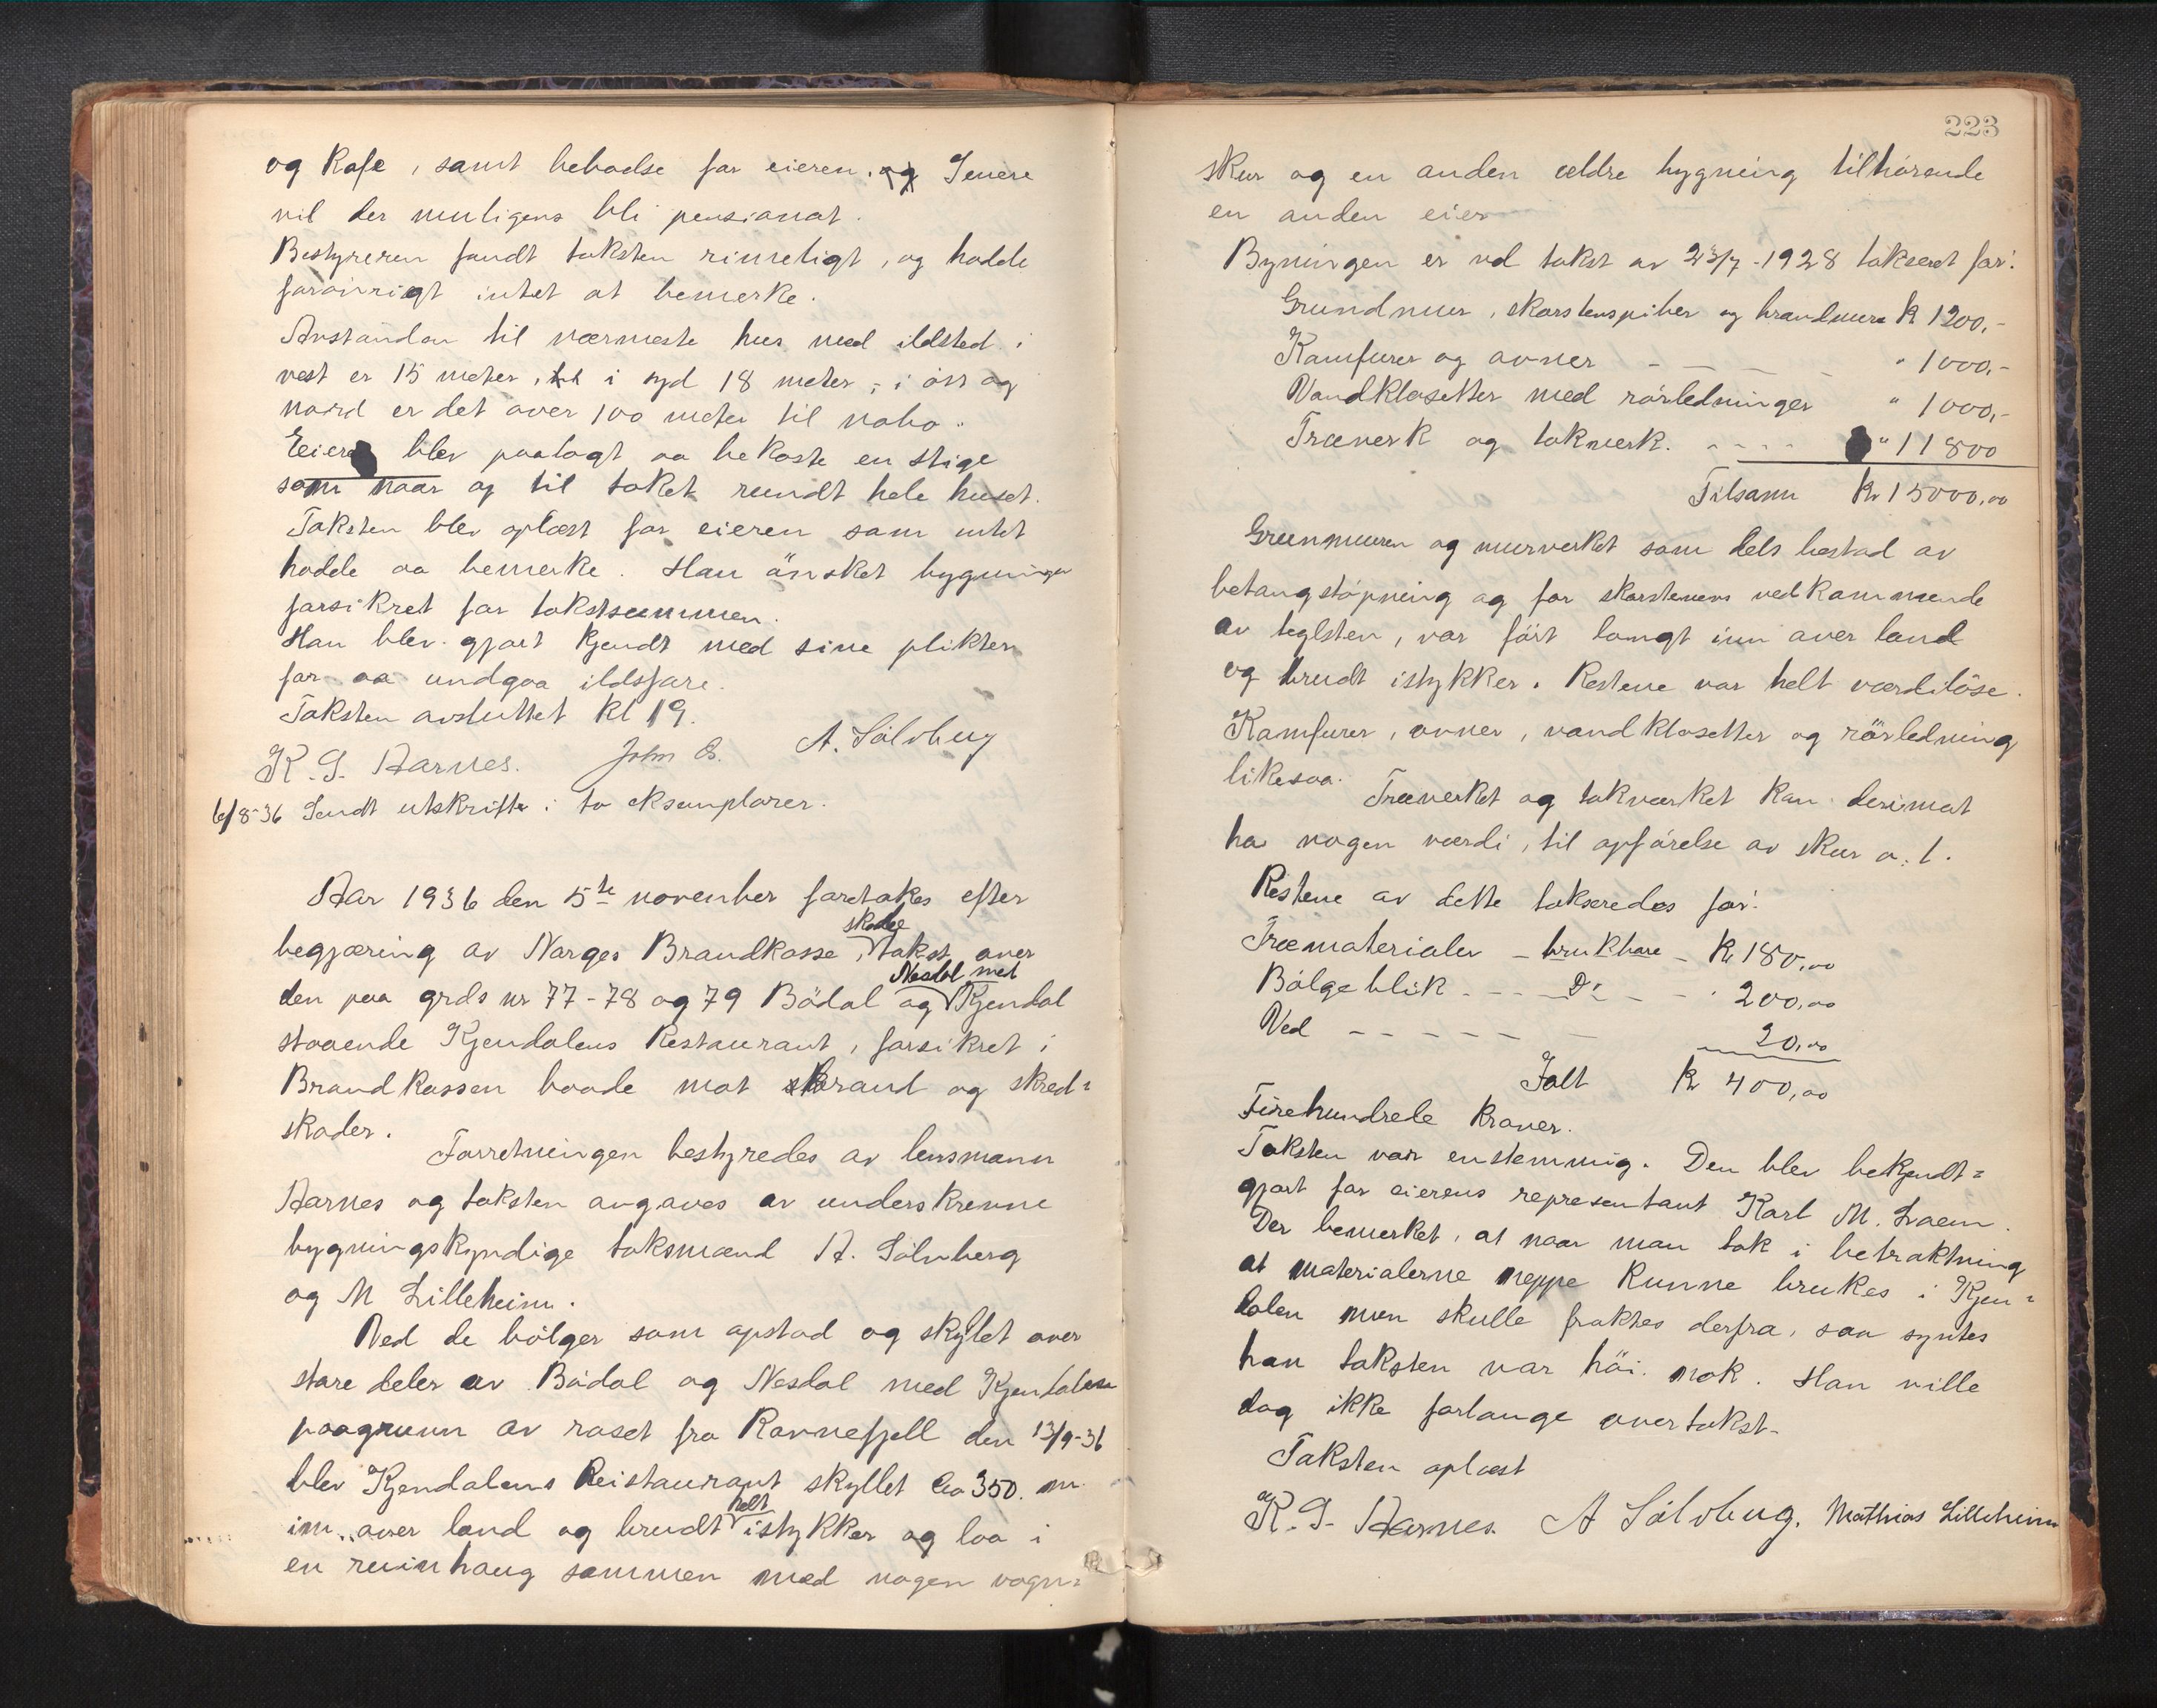 og Kafe, samt beboelse for eieren. og Senere
vil der muligens bli pensionat.
Bestyreren fandt taksten rimeligt, og hadde
forøvrigt intet at bemerke.
Avstanden til nærmeste hus med ildsted i
vest er 15 meter, i syd 18 meter, i öst og
nord er det over 100 meter til nabo.
Eieren blev paalagt aa bekoste en stige
som naar op til taket rundt hele huset.
Taksten blev oplæst for eieren som intet
hadde aa bemerke. Han önsket bygningen
forsikret for takstsummen.
Han blev gjort kjendt med sine plikter
for aa undgaa ildsfare.
Taksten avsluttet kl 19.
K. G. Aarnes. John E. A. Sölvberg
6/8-36 Sendt utskrifter i to eksemplarer.
Aar 1936 den 5te november foretokes efter
begjæring av Norges Brandkasse, skade takst over
den paa grds nr 77-78 og 79 Bödal og Nesdal med Kjendal
staaende Kjendalens Restaurant, forsikret i
Brandkassen baade mot brand og skred=
skader. Forretningen bestyredes av lensmann
Aarnes og taksten avgaves av underskrevne
bygningskyndige takstmænd A. Sölvberg
og M Lilleheim.
Ved de bölger som opstod og skyllet over
store deler av Bödal og Nesdal med Kjendalen
paagrunn av raset fra Ravnefjell den 13/9-36
blev Kjendalens Reistaurant skyllet ca 350 m
inn over land og brudt helt istykker og laa i
en ruinhaug sammen med nogen vogn=
223
skur og en anden ældre bygning tilhörende
en anden eier
Byningen er ved takst av 23/7-1928 taksert for:
Grundmur, skorstenspiber og brandmure kr 1200,-
Komfurer og ovner - - - - " 1000,-
Vandklosetter med rörledninger " 1000,-
Træverk og takverk. - - - - " 11800
Tilsam Kr 15000,00
Grunmuren og murverket som dels bestod av
betongstöpning og for skorstenens vedkommende
av teglsten, var fört langt inn over land
og brudt istykker. Restene var helt værdilöse.
Komfurer, ovner, vandklosetter og rörledning
likesaa. Træverket og takværket kan derimot
ha nogen værdi, til opförelse av skur o. l.
Restene av dette takseredes for:
Træmaterialer - brukbare - Kr 180,00
Bölgeblik - - - Do - - - 200,00
Ved - - - - - - 20,00
Ialt Kr 400,00
Firehundrede Kroner.
Taksten var enstemmig. Den blev bekjendt=
gjort for eierens representant Karl M. Loen.
Der bemerket, at naar man tok i betraktning
at materialerne neppe kunne brukes i Kjen=
dalen men skulle fraktes derfra, saa syntes
han taksten var höi nok. Han ville
dog ikke forlange overtakst.
Taksten oplæst
K. G. Aarnes. A Sölvberg. Mathias Lilleheim